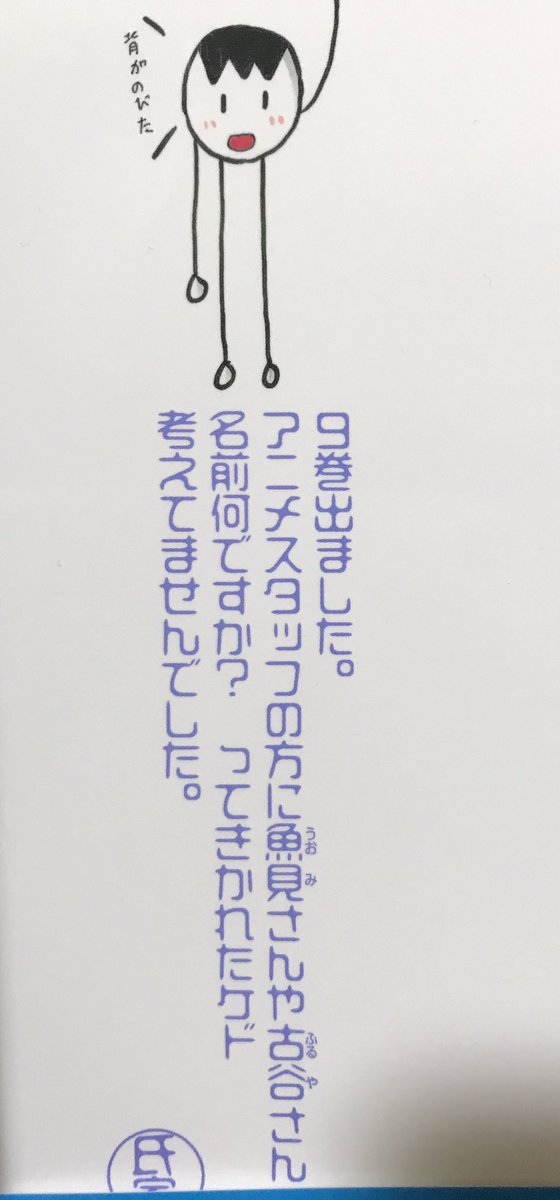 背がのびた
9巻出ました。
アニメスタッフの方に魚見さんや古谷さん
名前何ですか？ ってきかれたケド
考えてませんでした。
うおみ
ふるや
氏